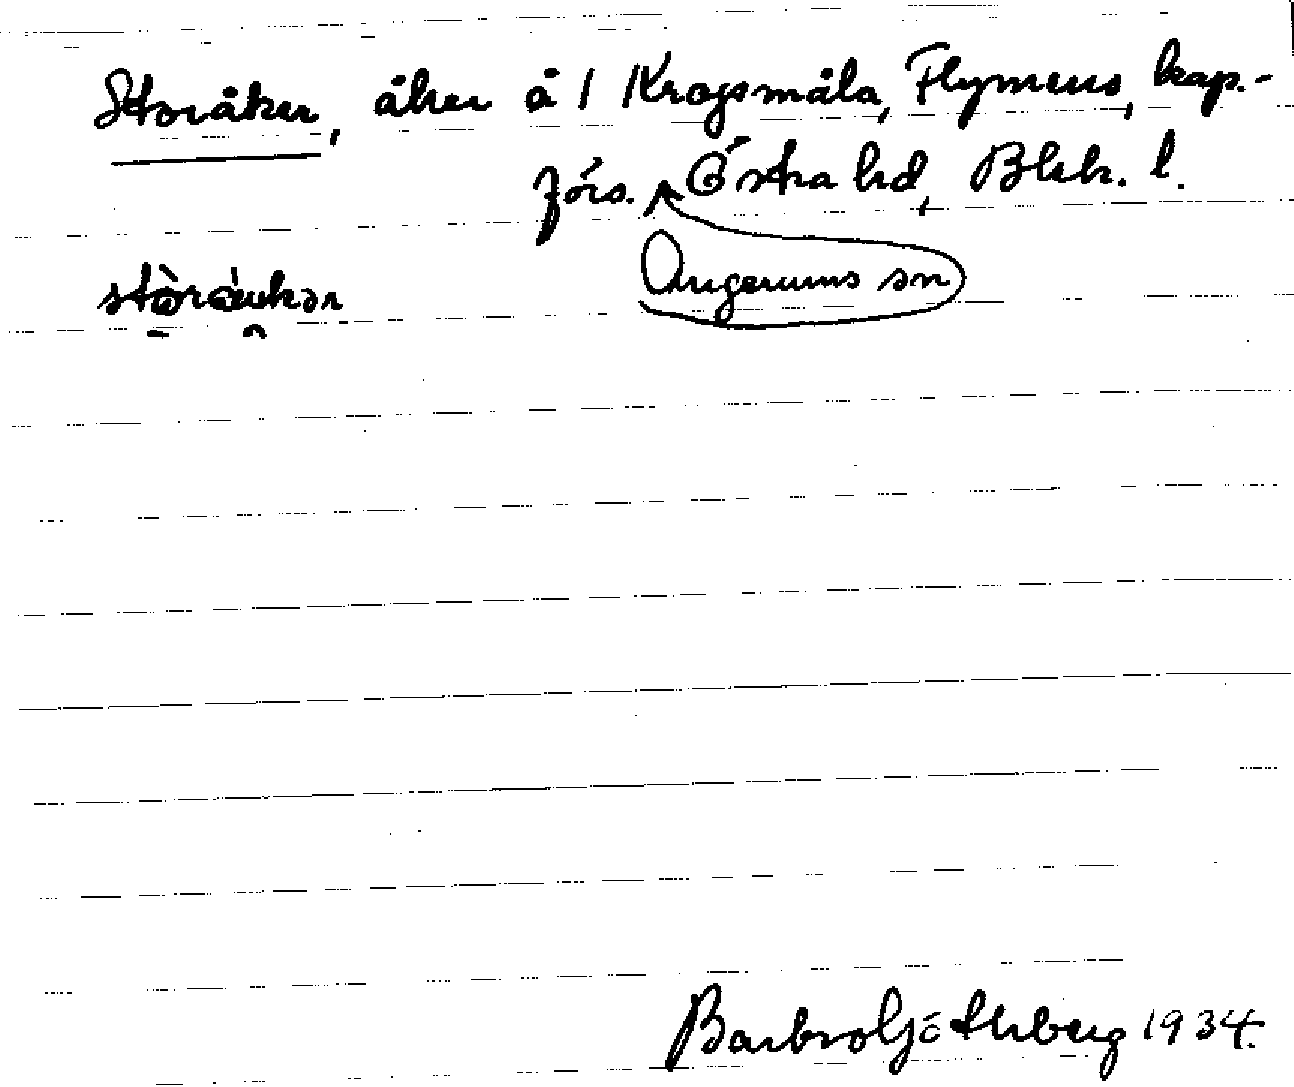 Storåker, åker å 1 Krogsmåla, Flymens kap.-
förs. Östra hd, Blek. l.
Augerums sn
stòráukər
Barbro Götherberg 1934.